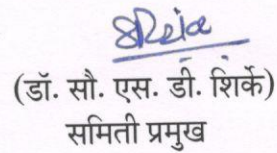 (डॉ. सौ. एस. डी. शिर्के)
समिती प्रमुख